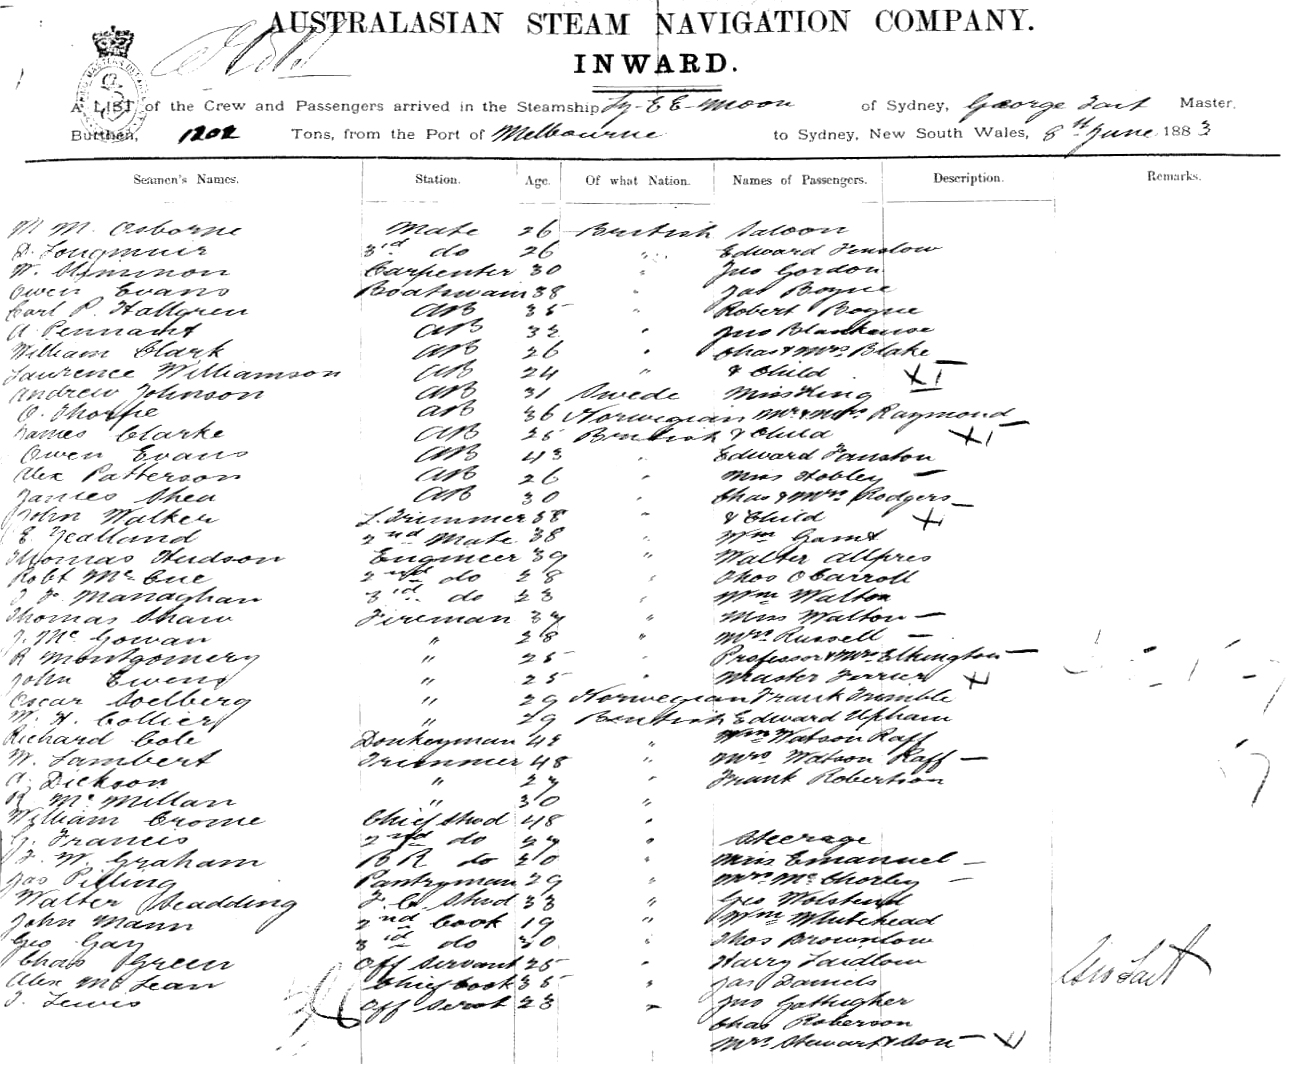 AUSTRALASIAN STEAM NAVIGATION COMPANY.
INWARD.
A LIST of the Crew and Passengers arrived in the Steamship Ly-E E-Moon of Sydney, George Tait Master.
Burthen, 1202 Tons, from the Port of Melbourne to Sydney, New South Wales, 8th June 1883
Seamen's Names. Station. Age. Of what Nation. Names of Passengers. Description. Remarks.
M M. Osborne Mate 26 British Saloon
D. Longmuir 3rd do 26 " Edward Tenslow
W. Slimmon Carpenter 30 " Jno Gordon
Owen Evans Boatswain 38 " Jas Boyne
Carl P. Hallgren AB 35 " Robert Boyne
A Pennant AB 32 " Jno Blankense
William Clark AB 26 " Chas & Mrs Blake
Laurence Williamson AB 24 " & Child
Andrew Johnson AB 31 Swede Miss King
O. Thorpe AB 36 Norwegian Mr & Mrs Raymond
James Clarke AB 25 British & Child
Owen Evans AB 43 " Edward Fanston
Alex Patterson AB 26 " Miss Hobley
James Shea AB 30 " Chas & Mrs Rodgers
John Walker L. Trimmer 38 " & Child
E. Yealland 2nd Mate 38 " Wm Gamt
Thomas Hudson Engineer 39 " Walter Allpres
Robt McCue 2nd do 28 " Thos O Carroll
J F Managhan 3rd do 23 " Wm Walton
Thomas Shaw Fireman 37 " Miss Walton
J. Mc Gowan " 28 " Mrs Russell
R Montgomery " 25 " Professor & Mrs Elkington
John Ewens " 25 " Master Ferrier
Oscar Soelberg " 29 Norwegian Frank Trimble
W. H. Collier " 29 British Edward Upham
Richard Cole Donkeyman 48 " Wm Watson Raff
W. Lambert Trimmer 48 " Mrs Watson Raff
C. Dickson " 27 " Frank Robertson
R McMillan " 30 "
William Crome Chief Stwd 48 "
G. Francis 2nd do 27 " Steerage
F. W. Graham B R do 20 " Miss Emanuel
Jas Pilling Pantryman 29 " Mrs McChorley
Walter Scadding F. C. Stwd 33 " Geo Wolstend
John Mann 2nd Cook 19 " Wm Whitehead
Geo Gay 3rd do 30 " Thos Brownlow
Chas Green Off Servant 25 " Harry Laidlow
Alex McLean Chief Cook 35 " Jas Daniels
J. Lewis Off Servt 23 " Jno Gallagher
Chas Roberson
Mrs Stewart & Son
Geo Tait